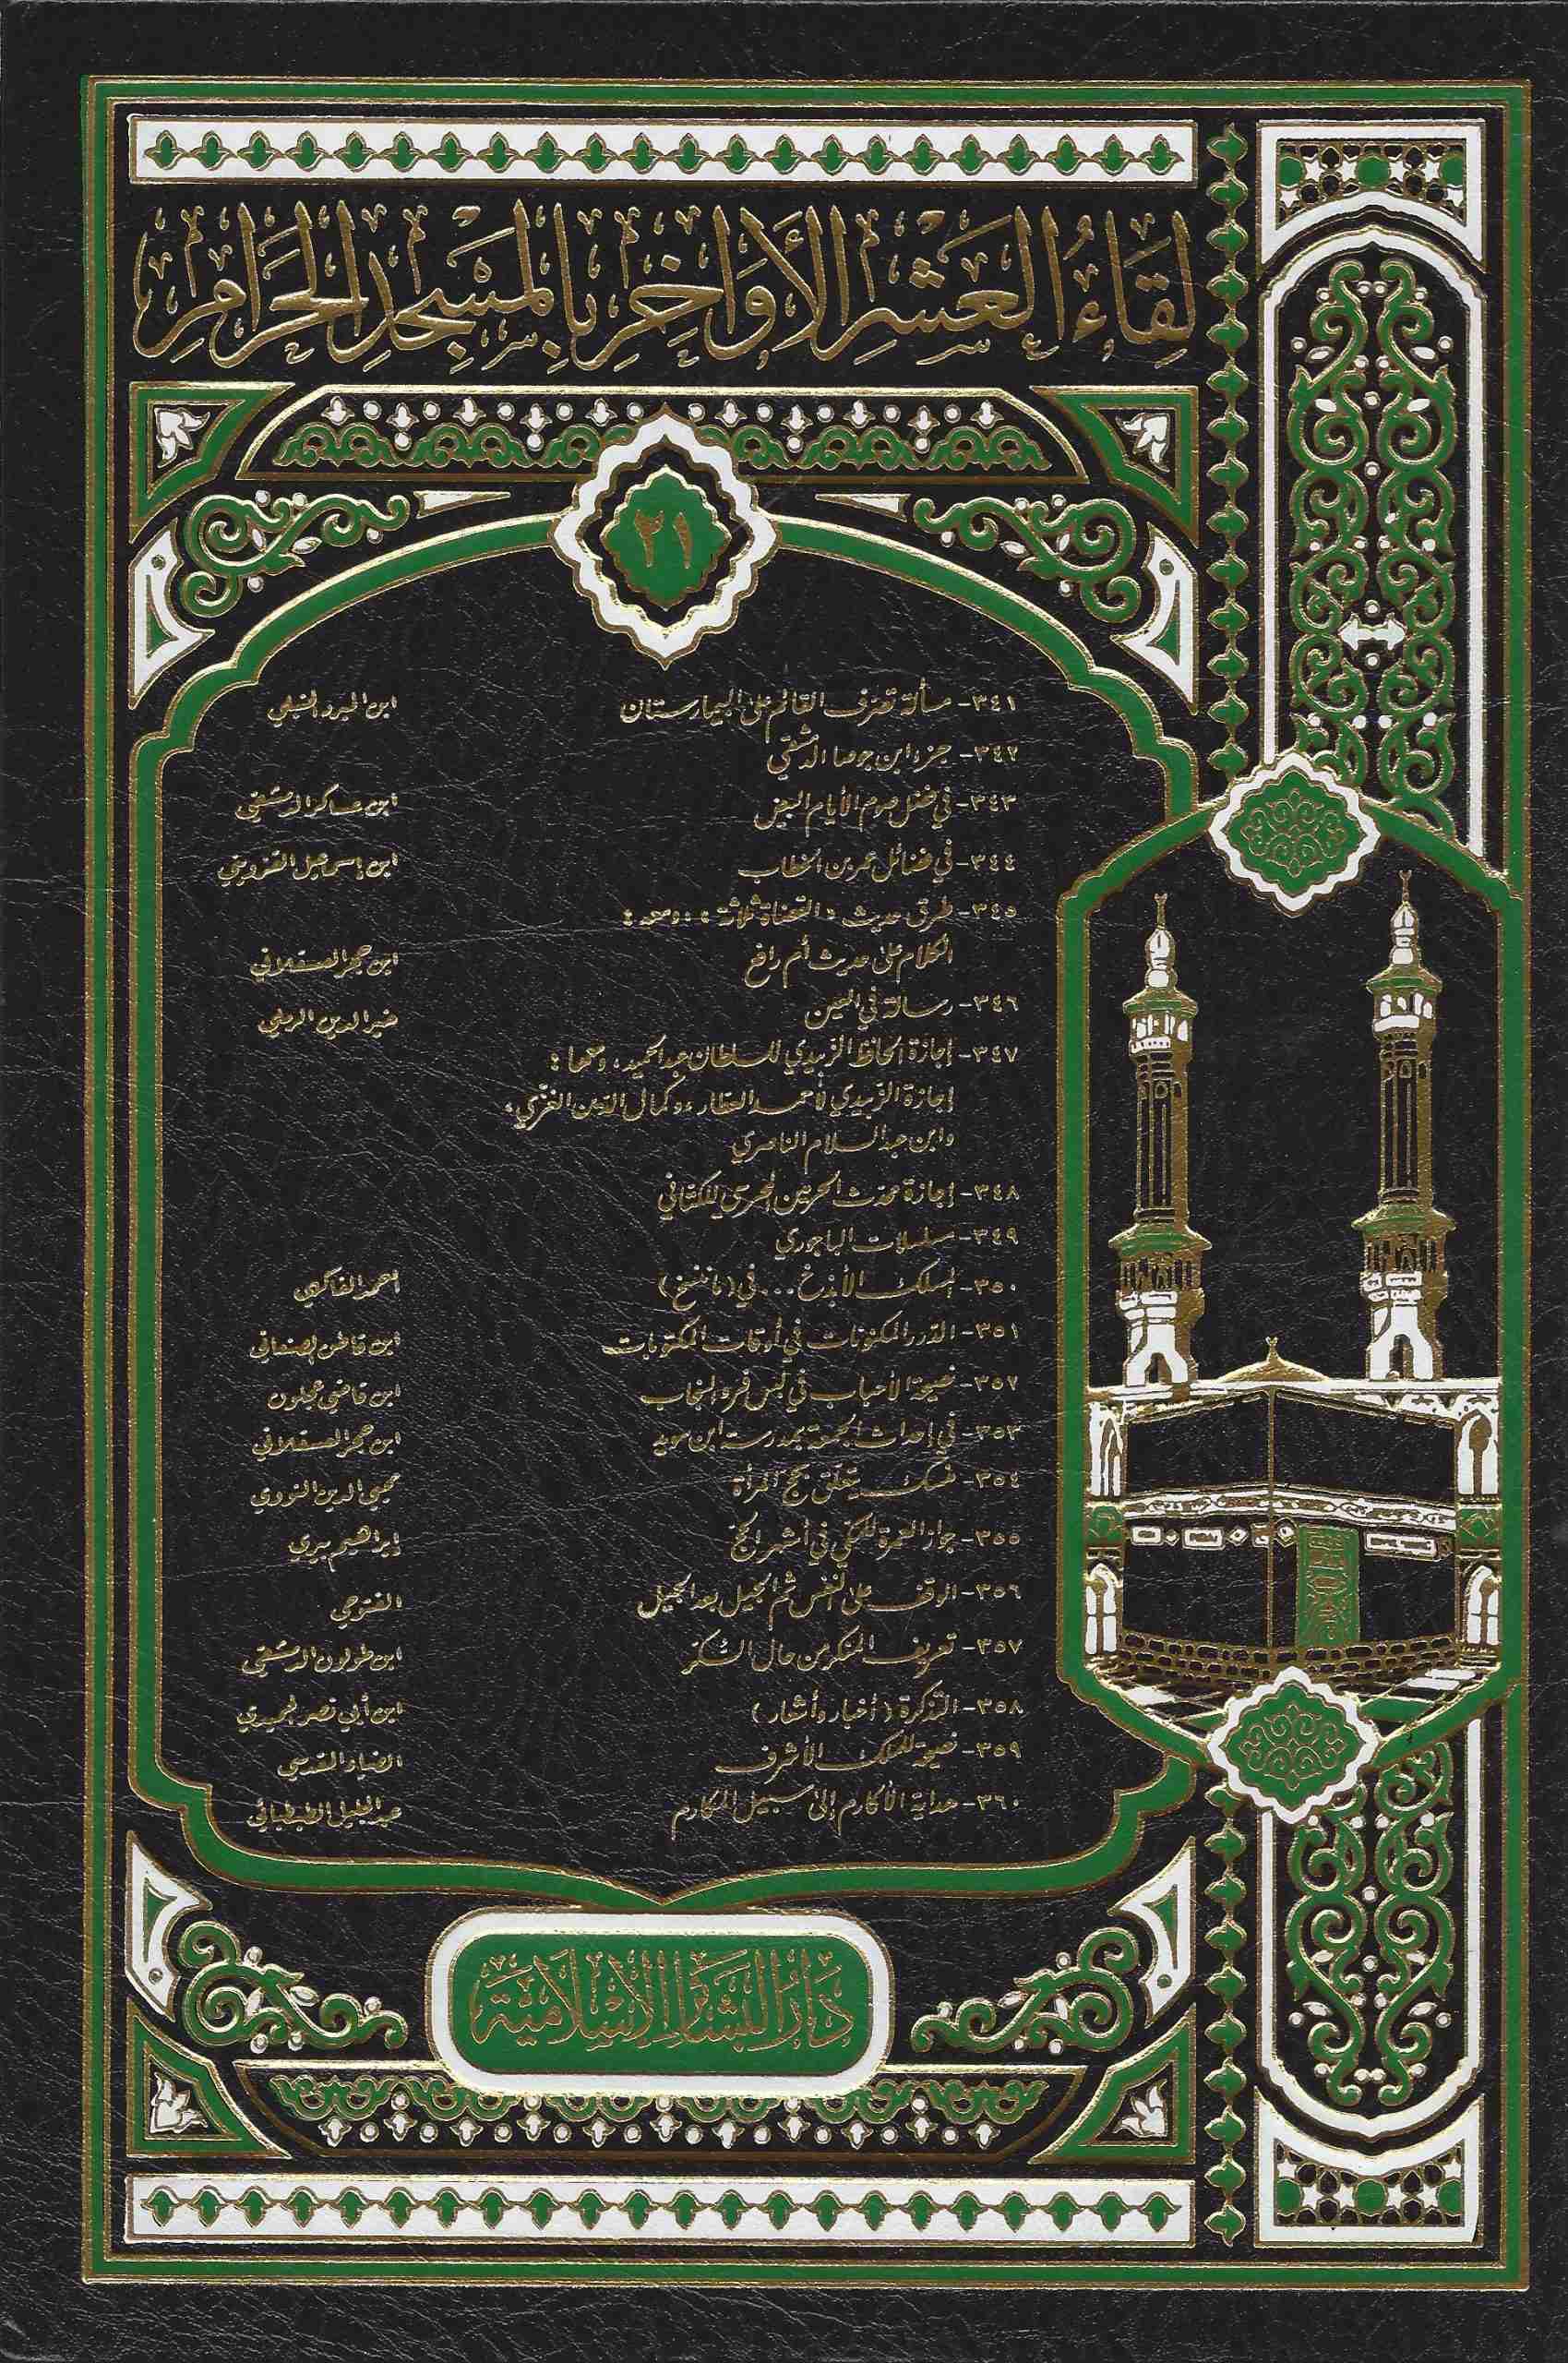 لِقَاءُ العَشْرِ الأَوَاخِرِ بِالمَسْجِدِ الحَرَامِ
٢١
٣٤١- مسألة تصرّف القائم على البيمارستان ابن المبرد الحنبلي
٣٤٢- جزء ابن جوصا الدمشقي
٣٤٣- في فضل صوم الأيام البيض ابن عساكر الدمشقي
٣٤٤- في فضائل عمر بن الخطاب ابن إسماعيل القزويني
٣٤٥- طرق حديث «القضاة ثلاثة»، ومعه:
الكلام على حديث أم رافع ابن حجر العسقلاني
٣٤٦- رسالة في اليمين خير الدين الرملي
٣٤٧- إجازة الحافظ الزَّبيدي للسلطان عبد الحميد، ومعها:
إجازة الزَّبيدي لأحمد العطار، وكمال الدين الغزّي،
وابن عبد السلام الناصري
٣٤٨- إجازة محدّث الحرمين المحرسي للكتاني
٣٤٩- مسلسلات الباجوري
٣٥٠- المسلك الأبذخ... في (ما ننسخ) أحمد الفاكهي
٣٥١- الدرر المكنونات في أوقات المكتوبات ابن قاطن الصنعاني
٣٥٢- نصيحة الأحباب في لبس فرو السنجاب ابن قاضي عجلون
٣٥٣- في إحداث الجمعة بمدرسة ابن سويد ابن حجر العسقلاني
٣٥٤- نسك يتعلّق بحج المرأة محيي الدين النووي
٣٥٥- جواز العمرة للمكّي في أشهر الحج إبراهيم بيري
٣٥٦- الوقف على النفس ثم الجيل بعد الجيل الفتوحي
٣٥٧- تعريف المنكر من حال السُّكَّر ابن طولون الدمشقي
٣٥٨- التذكرة (أخبار وأشعار) ابن أبي نصر الحميدي
٣٥٩- نصيحة للملك الأشرف الضياء المقدسي
٣٦٠- هداية الأكارم إلى سبيل المكارم عبد الجليل الطبطبائي
دَارُ البَشَائِرِ الإِسْلَامِيَّة